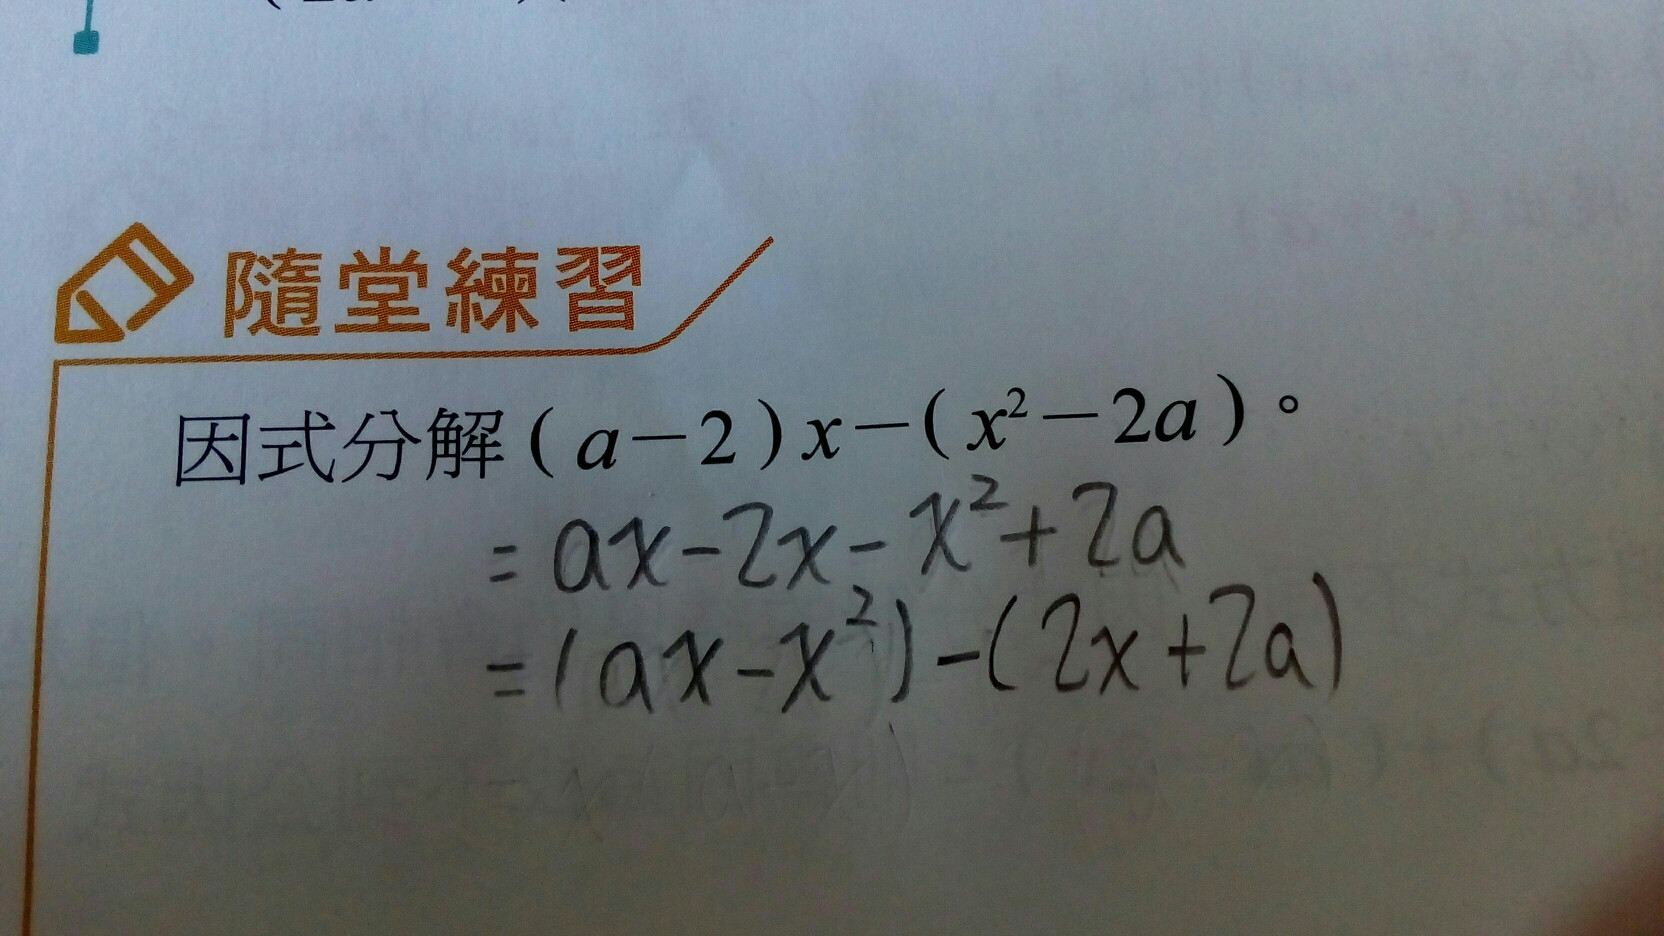 隨堂練習
因式分解(a－2)x－(x²－2a)。
= ax-2x-x²+2a
=(ax-x²)-(2x+2a)